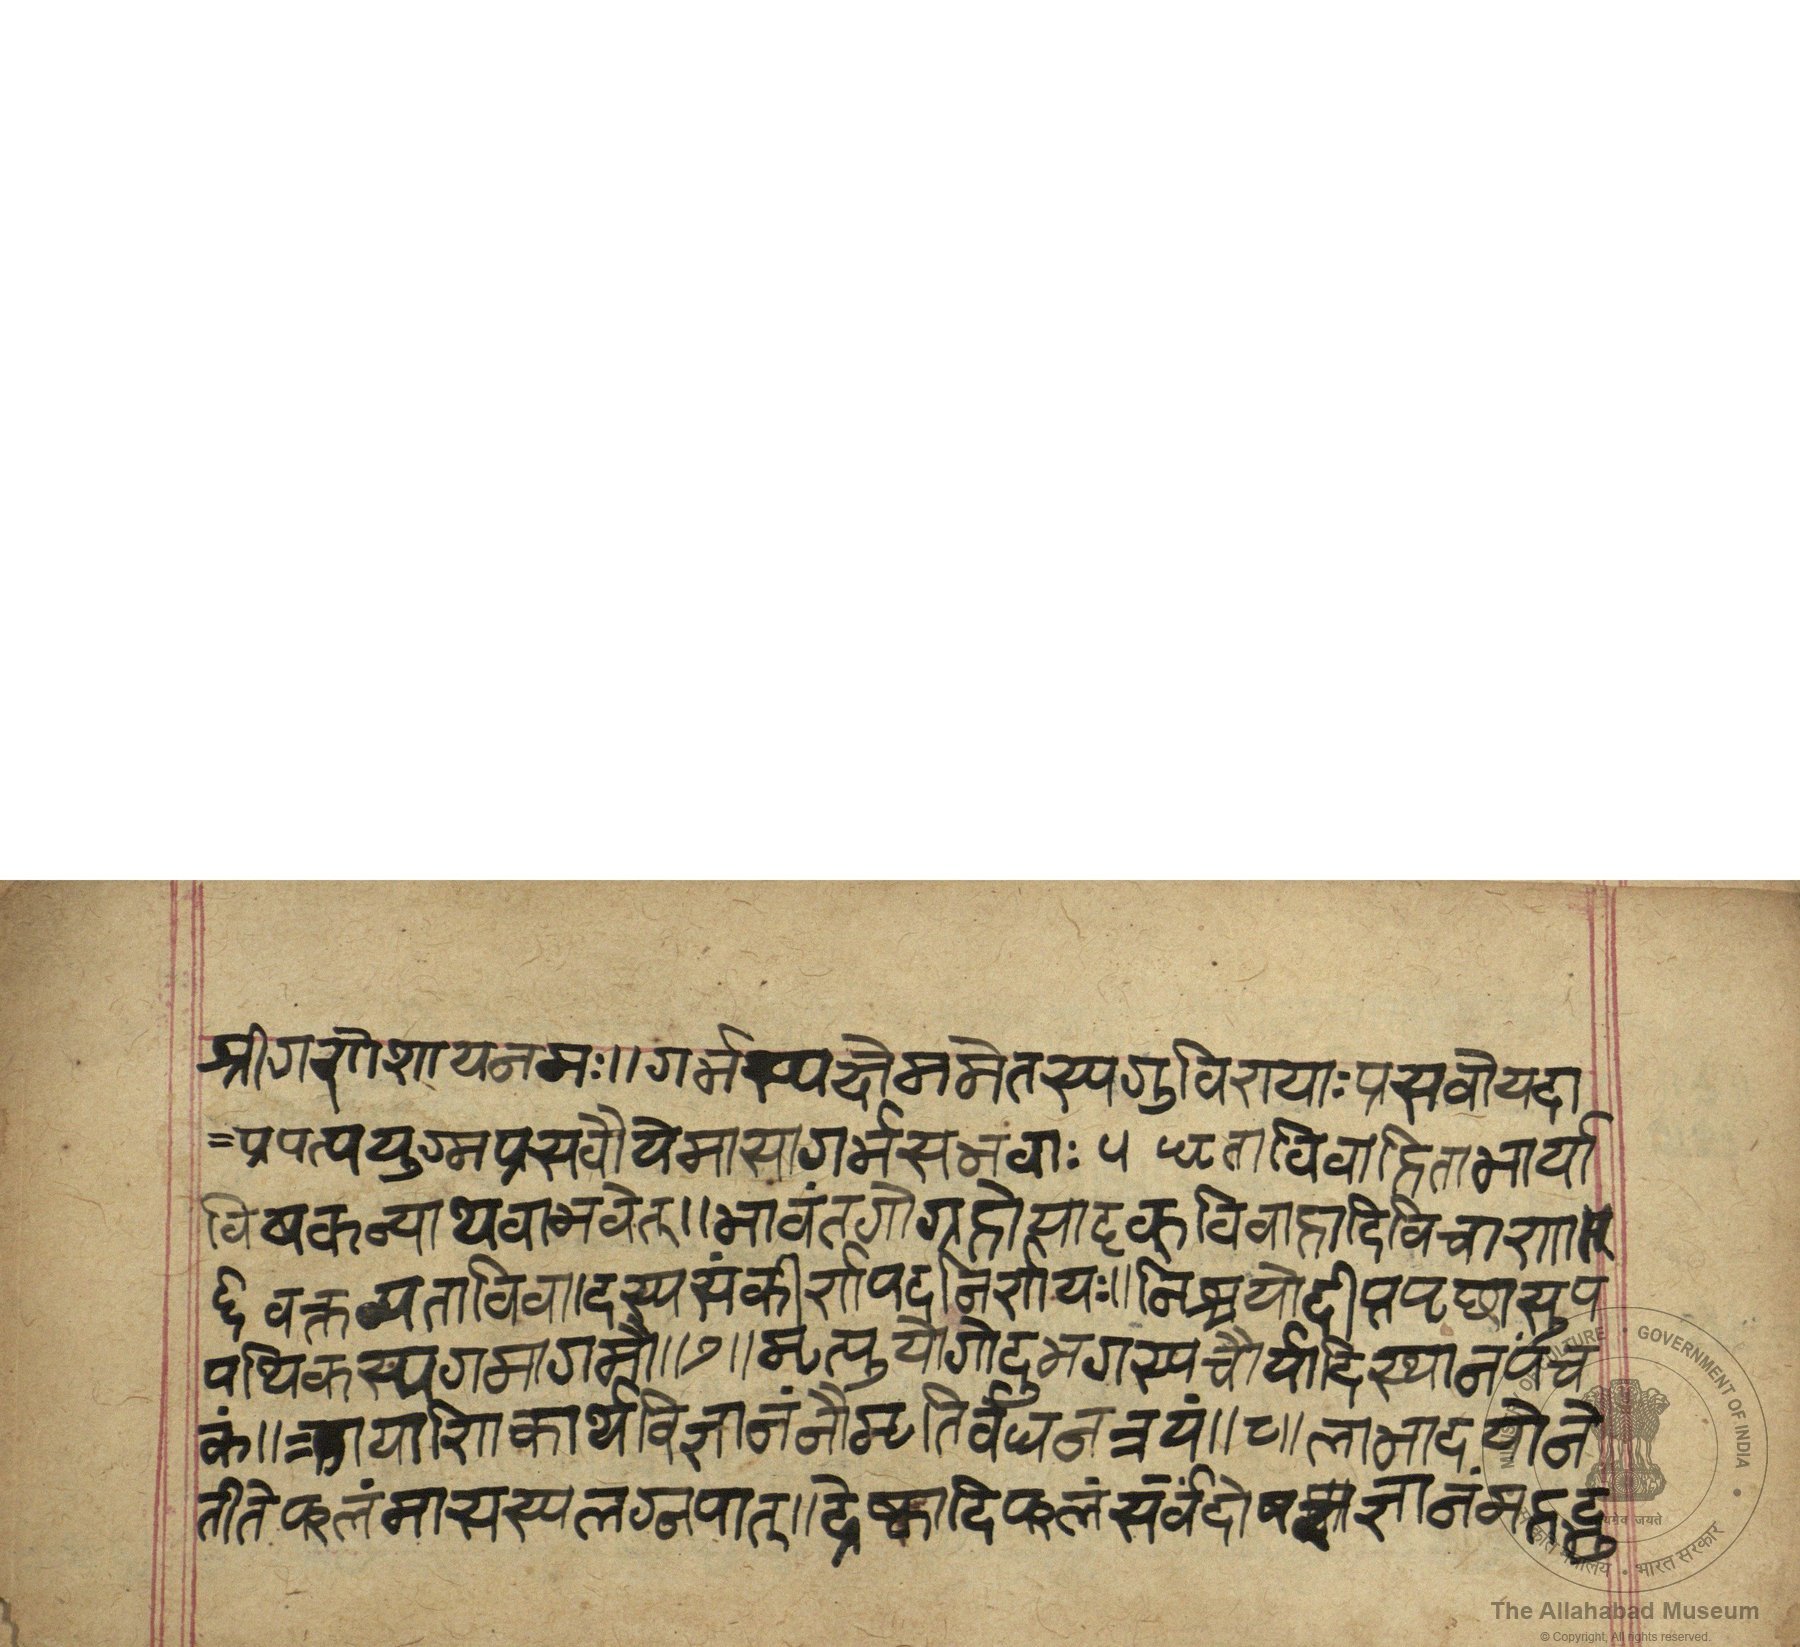 श्रीगणेशायनमः॥गर्भस्पक्षेममेतस्पगुविरायाःप्रसवोयदा
=प्रपत्पयुग्मप्रसवोयेमासागर्भसभवाः ५ धृताविवाहिताभार्या
विषकन्याथवाभवेत्॥भावंतगोग्रहोस्पादृक्विवाहादिविचारणा
वक्तव्यताविवादस्पसंकीर्णपदनिर्णयः॥निश्चयोदीप्तपृछासुप
पथिकस्पगमागमौ॥७॥मृत्पुयोगोदुभगस्पचौर्यादिस्थानपंच
कं॥ यारिकार्थविज्ञानंनौमृतिर्वधनत्रयं॥८॥लाभादयोने
तीतेफलंमासस्पलग्नपात्॥द्रेष्कादिफलंसर्वंदोषज्ञानंमहद्दु
MINISTRY OF CULTURE • GOVERNMENT OF INDIA
सत्यमेव जयते
संस्कृति मंत्रालय • भारत सरकार
The Allahabad Museum
© Copyright, All rights reserved.